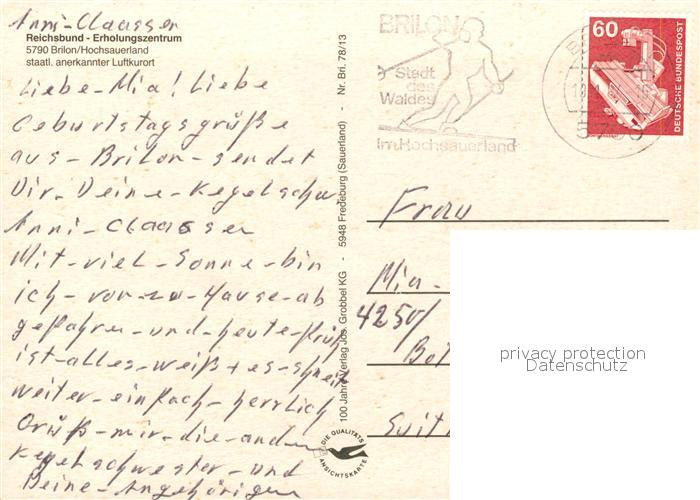 Anni-Claasser
Reichsbund - Erholungszentrum
5790 Brilon/Hochsauerland
staatl. anerkannter Luftkurort
Liebe-Mia! Liebe
Geburtstagsgrüße
aus-Brilon-sendet
Dir-Deine-Kegelschw
Anni-Claasser
Mit-viel-Sonne-bin
ich-von-zu-Hause-ab
gefahren-und-heute-früh
ist-alles-weiß+es-schneit
weiter-einfach-herrlich
Grüß-mir-die-andern
Kegelschwester-und
Deine-Angehörigen
100 Jahre Verlag Jos. Grobbel KG - 5948 Fredeburg (Sauerland) - Nr. Bri. 78/13
DIE QUALITÄTS
ANSICHTSKARTE
BRILON
Stadt
des
Waldes
im Hochsauerland
60
DEUTSCHE BUNDESPOST
Frau
Mia-
4250/
Bot
Suit
privacy protection
Datenschutz